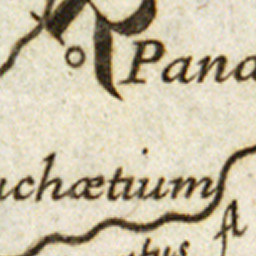 Pana
uchætium
fl
tus